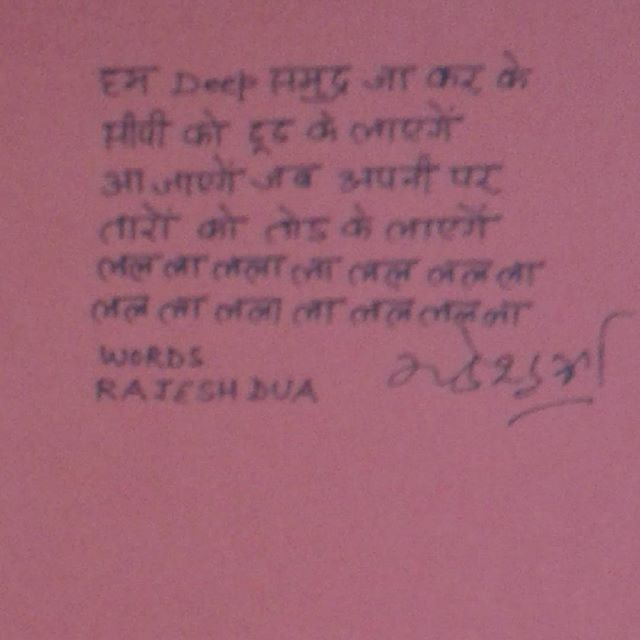 हम Deep समुद्र जा कर के
सीपी को ढूढ के लाएगें
आ जाएगें जब अपनी पर
तारों को तोड के लाएगें
लल ला लला ला लल लल ला
लल ला लला ला लल लल ला
WORDS
RAJESH DUA